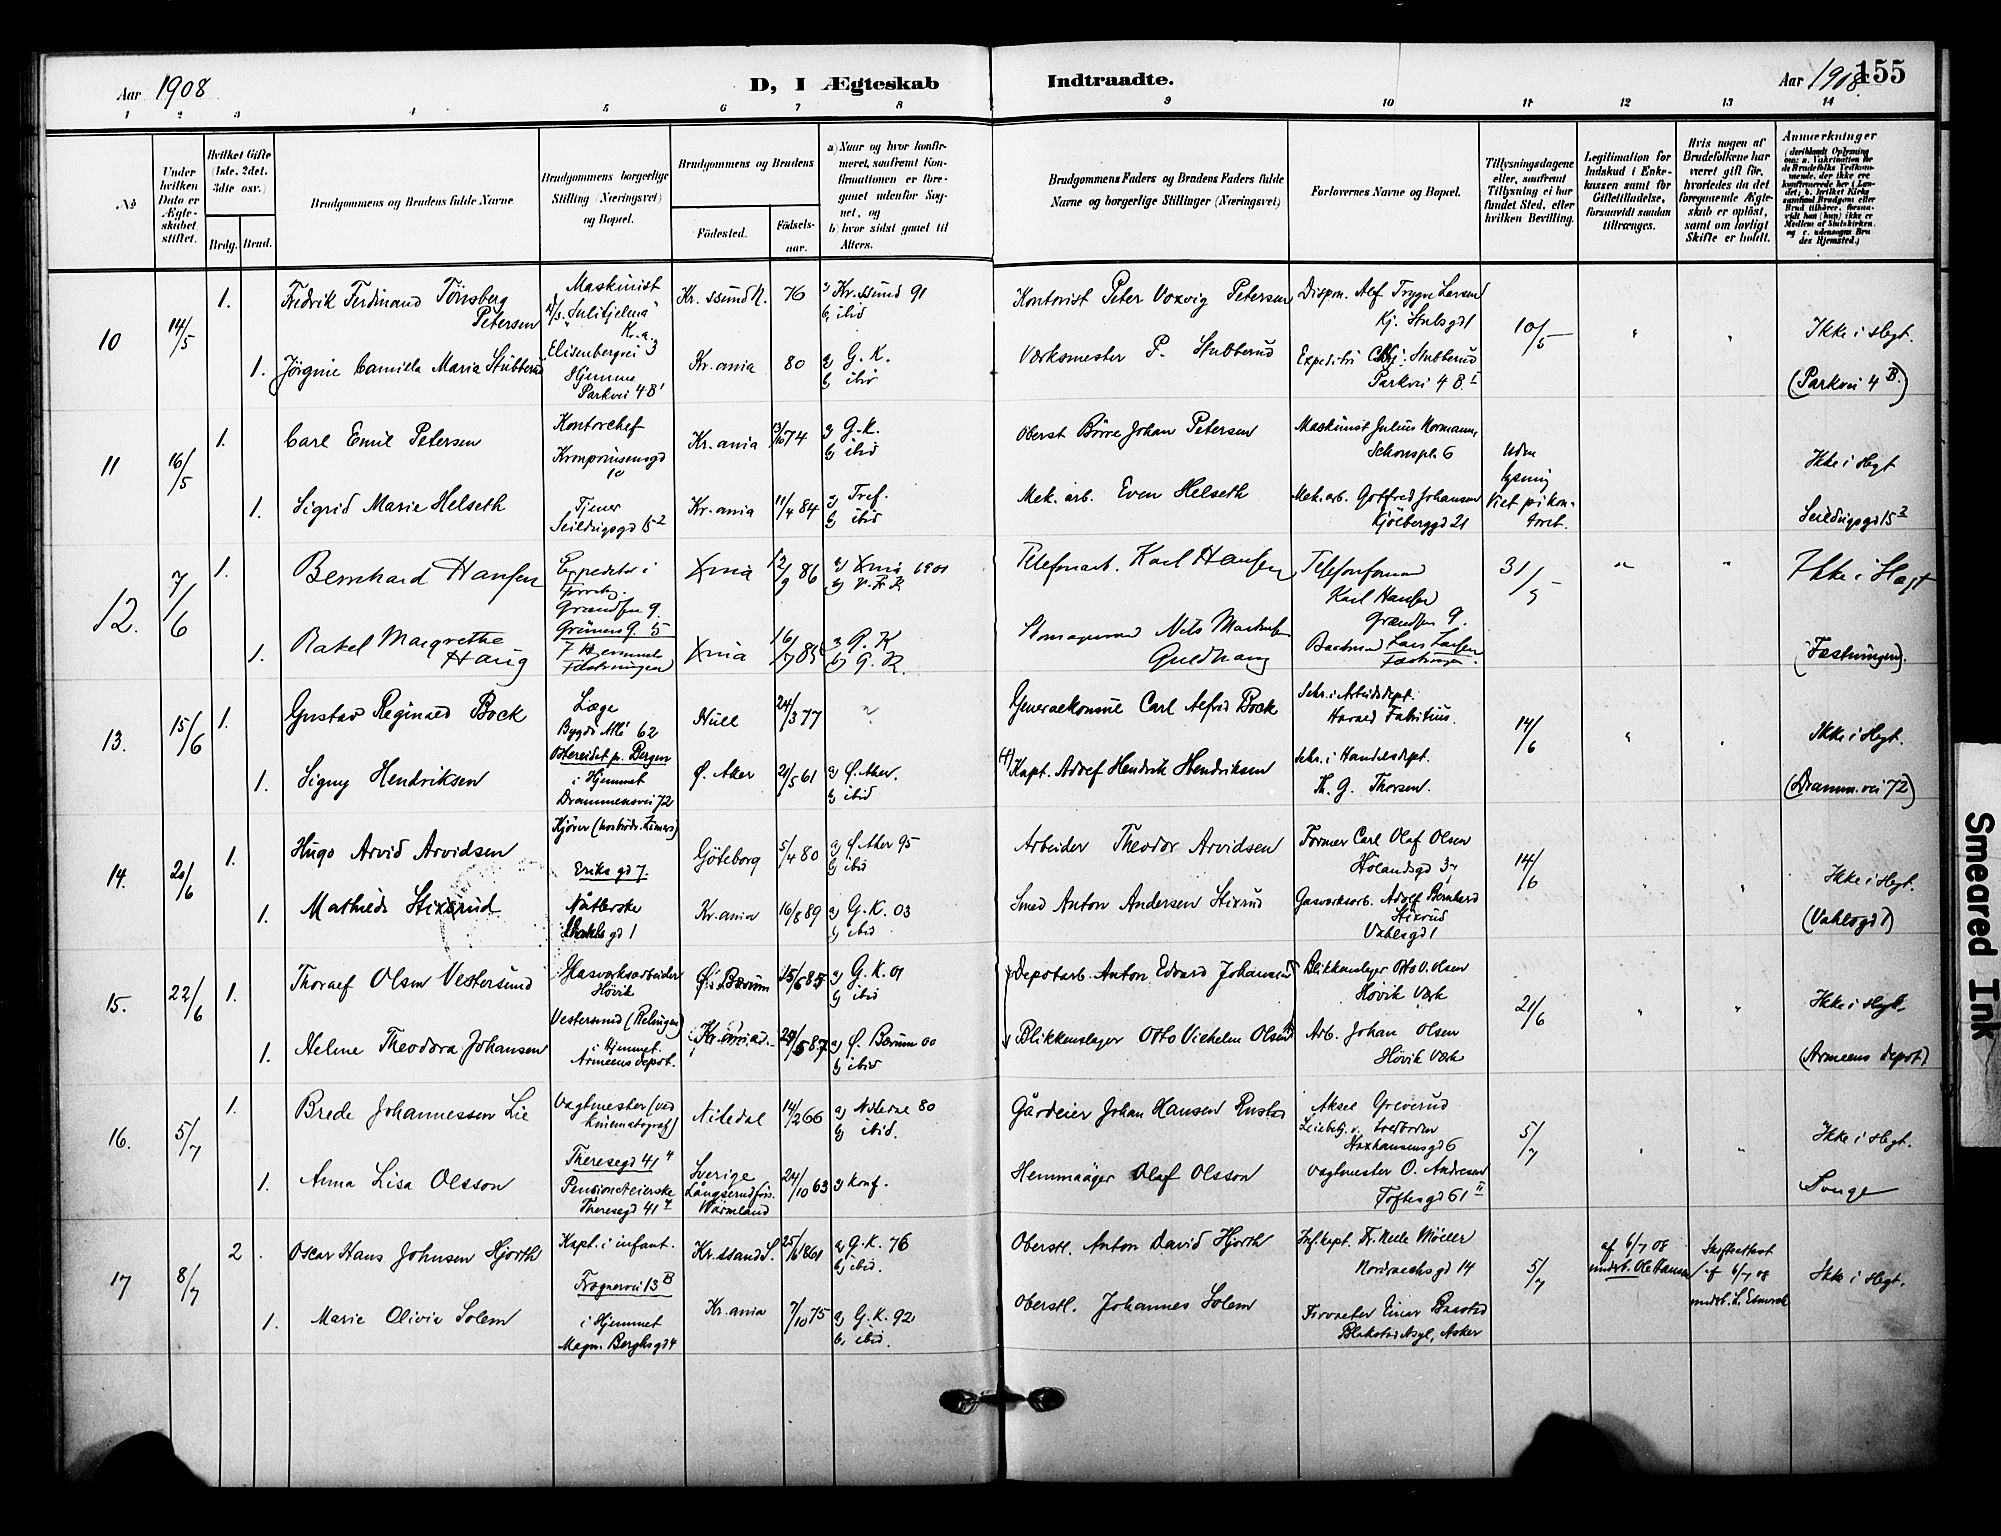 Aar 1908
D, I Ægteskab Indtraadte.
Aar 1908
155
1 2 3 4 5 6 7 8 9 10 11 12 13 14
№
Under hvilken Dato er Ægteskabet stiftet.
Hvilket Gifte (1ste, 2det, 3die osv.)
Brdg. Brud.
Brudgommens og Brudens fulde Navne
Brudgommens borgerlige Stilling (Næringsvei) og Bopæl.
Brudgommens og Brudens
Fødested.
Fødselsaar.
a) Naar og hvor konfirmeret, saafremt Konfirmationen er foregaaet udenfor Sognet, og
b) hvor sidst gaaet til Alters.
Brudgommens Faders og Brudens Faders fulde Navne og borgerlige Stillinger (Næringsvei)
Forlovernes Navne og Bopæl.
Tillysningsdagene eller, saafremt Tillysning ei har fundet Sted, efter hvilken Bevilling.
Legitimation for Indskud i Enkekassen samt for Giftetilladelse, forsaavidt saadan tiltrænges.
Hvis nogen af Brudefolkene har været gift før, hvorledes da det foregaaende Ægteskab er opløst, samt om lovligt Skifte er holdt.
Anmerkninger
10 14/5
1. Fredrik Ferdinand Tönsberg Petersen
Maskinist D/s. "Sulitjelma" Kr.a. Eisenbergvei 3
Kr.ssund N. 76
a, Kr.ssund 91
b, ibid
Kontorist Peter Voxvig Petersen
Dispon. Alef Trygve Larsen
Kj. Stubsgd 1
10/5 " "
Ikke i slegt.
1. Jörgine Camilla Maria Stubberud
Hjemme
Parkvei 4 B'
Kr.ania 80
a, G. K.
b, ibid
Værksmester P. Stubberud
Stubberud
Parkvei 4 B. I
(Parkvei 4 B.)
11 16/5
1. Carl Emil Petersen
Kontorchef
Kronprinsensgd 10
Kr.ania 13/10 74
a, G. K.
b, ibid
Oberst Börre Johan Petersen
Maskinist Julius Normann,
Schouspl. 6
Uden lysning
Viet på kontoret.
Ikke i slegt
1. Sigrid Marie Helseth
Tjener
Seildugsgd 15 2
Kr.ania 11/4 84
a, Tref.
b, ibid
Mek. arb. Even Helseth
Mek. arb. Gotfred Johansen
Kjölberggd 21
Seildugsgd 15 2
12. 7/6
1. Bernhard Hansen
Expeditør i
Grændsen 9.
Grünersg. 5
Xnia 12/9 86
a) Xnia 1901
b) V. F. K
Telefonarb. Karl Hansen
Telefonformand
Karl Hansen
Grændsen 9.
31/5 " "
Ikke i Slegt
1. Rakel Margrethe Haug
i Hjemmet
Fæstningen
Xnia 16/7 85
a, G. K
b, G. K.
Nils Martinsen Guldhaug
Lars Larsen
Fæstningen.
(Fæstningen).
13. 15/6
1. Gustav Reginald Bock
Læge
Bygdö Allé 62
Ostereidet p. Bergen
Hull 24/3 77
Generalkonsul Carl Alfred Bock
Sekr. i Arbeidsdept.
Harald Fabritius.
14/6 " "
Ikke i slegt.
1. Signy Hendriksen
i Hjemmet
Drammensvei 72
Ø. Aker 21/5 61
a, Ø. Aker.
b, ibid
Kapt. Adolf Hendrik Hendriksen
Sekr. i Handelsdept.
Th. G. Thorsen.
(Dramm.vei 72)
14. 20/6
1. Hugo Arvid Arvidsen
Eriks gd 7.
Göteborg 5/4 80
a, Ø. Aker 95
b, ibid
Arbeider Theodor Arvidsen
Former Carl Olaf Olsen
Hölandsgd 3
14/6 " "
Ikke i slegt.
1. Mathilde Stixrud
Nåtlerske
Vahls gd 1
Kr.ania 16/8 89
a, G. K. 03
b, ibid
Smed Anton Andersen Stixrud
Gasverksarb. Adolf Bernhard Stixrud
Vahlsgd 1
(Vahlsgd 1)
15. 22/6
1. Thoralf Olsen Vestersund
Glasverksarbeider
Hövik
Vestersund
Ø. Bærum 15/6 85
a, G. K. 01
b, ibid
Depotarb. Anton Edvard Johansen
Blikkenslager Otto V. Olsen
Hövik Værk
21/6 " "
Ikke i slegt.
1. Helene Theodora Johansen
i Hjemmet.
Armeens depot.
Kr.ania
a, Ø. Bærum 00
b, ibid
Blikkenslager Otto Vilhelm Olsen
Arb. Johan Olsen
Hövik Værk
(Armeens depot)
16. 5/7
1. Brede Johannessen Lie
Vagtmester (ved kinematograf)
Theresegd 41 4
Nitedal 14/2 66
a, Nitedal 80
b, ibid.
Gårdeier Johan Hansen Rustad
Aksel Greverud
Haxhausensgd 6
5/7 " "
Ikke i slegt.
1. Anna Lisa Olsson
Pensionateierske
Theresegd 41
Sverige
Långserud förs.
Wärmland
24/10 63
a, Konf.
Hemmaäger Olaf Olsson
Vagtmester O. Andresen
Toftesgd 61 II
17 8/7
2. Oscar Hans Johnsen Hjorth
Kapt. i infant.
Frognervei 13 B
Kr.ssand S. 25/6 1861
a, G. K. 76
b, ibid.
Oberstl. Anton David Hjorth
Inf.kapt. Fr. Neele Möller
Nordraaksgd 14
5/7
af 6/7 08
undsk. Ole Hansen
Skifteattest
af 6/7 08
Ikke i slegt.
1. Marie Olivie Solem
i Hjemmet
Magn. Berghsgd 4
Kr.ania 7/10 75
a, G. K. 92
b, ibid.
Oberstl. Johannes Solem
Forvalter Einar Baastad
Blakstad Asyl, Asker
Smeared Ink